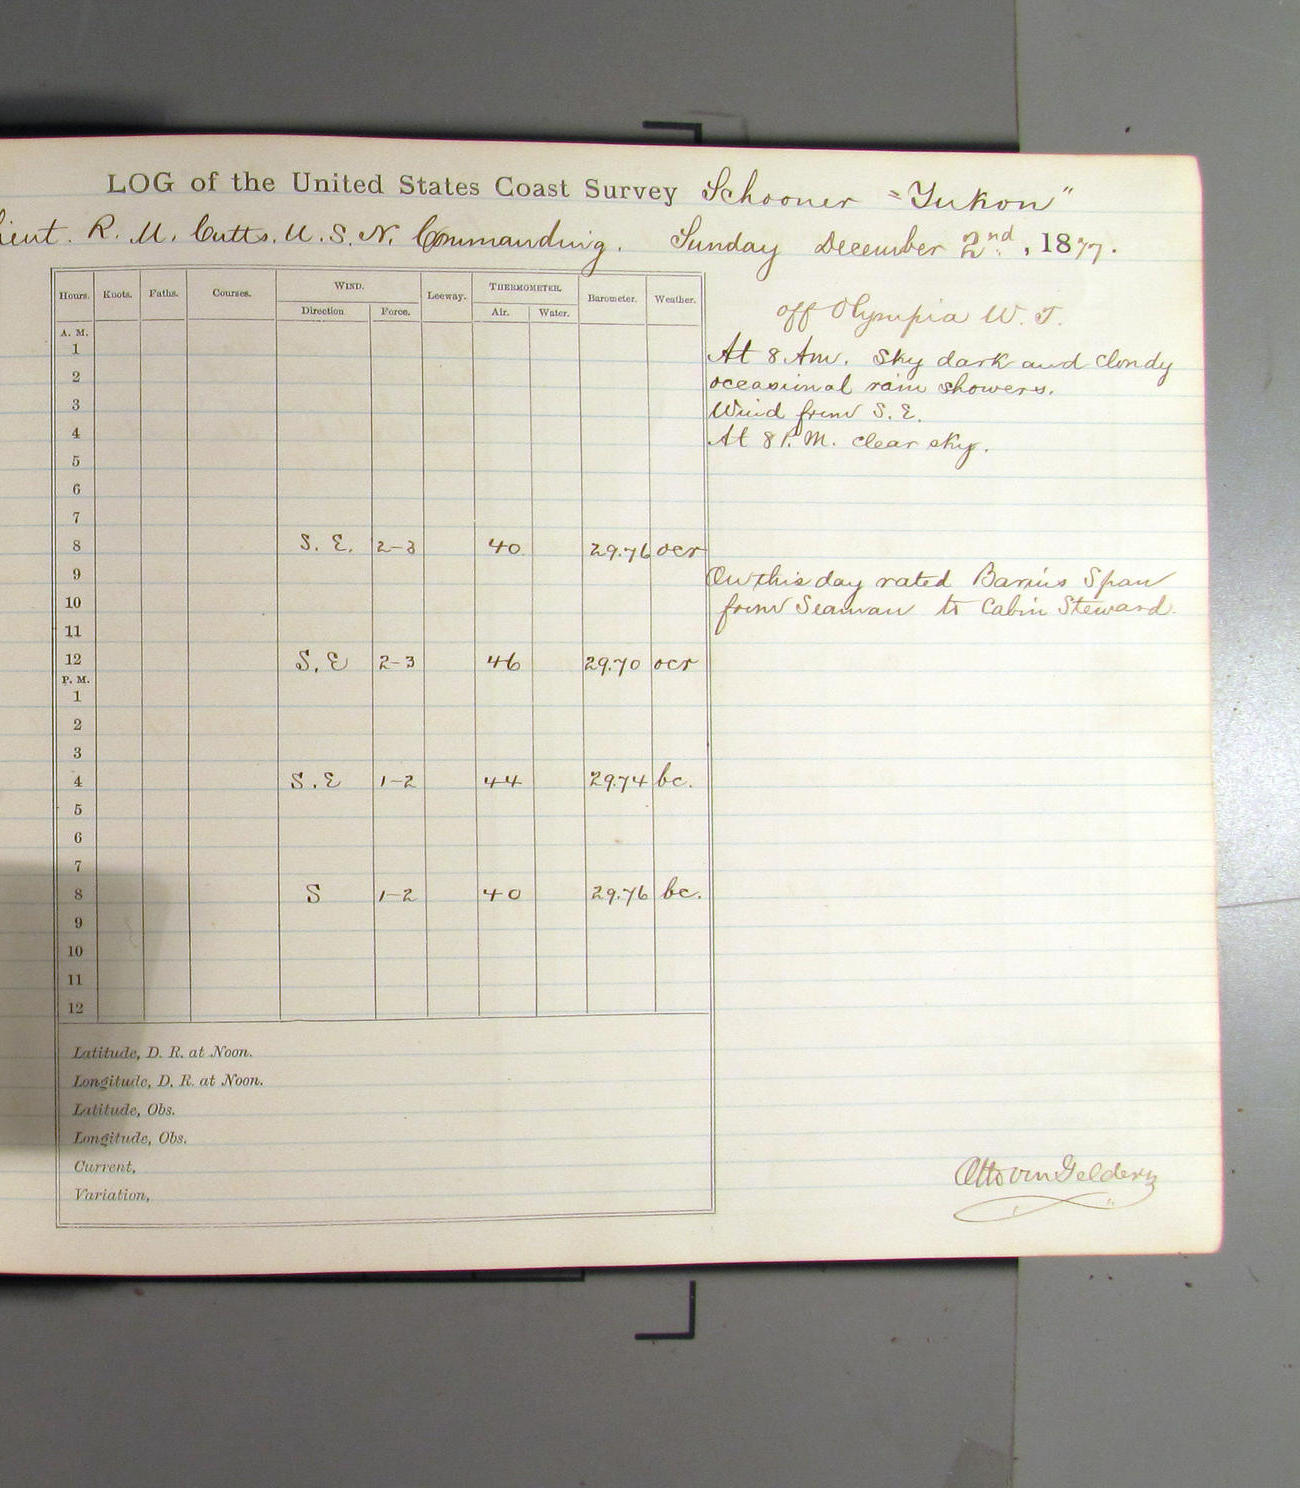 LOG of the United States Coast Survey Schooner "Yukon"
Lieut. R. M. Cutts. U.S.N. Commanding. Sunday December 2nd, 1877.
Hours. Knots. Faths. Courses. WIND. Leeway. THERMOMETER. Barometer. Weather.
Direction. Force. Air. Water.
off Olympia W. T.
A. M.
1
At 8 Am. Sky dark and cloudy
2
occasional rain showers.
3
Wind from S. E.
4
At 8 P.M. clear sky.
5
6
7
8 S. E. 2-3 40 29.76 ocr
9
On this day rated Spaw
10
from Seaman to Cabin Steward.
11
12 S. E 2-3 46 29.70 ocr
P. M.
1
2
3
4 S. E 1-2 44 29.74 bc.
5
6
7
8 S 1-2 40 29.76 bc.
9
10
11
12
Latitude, D. R. at Noon.
Longitude, D. R. at Noon.
Latitude, Obs.
Longitude, Obs.
Current,
Variation,
Otto von Geldern